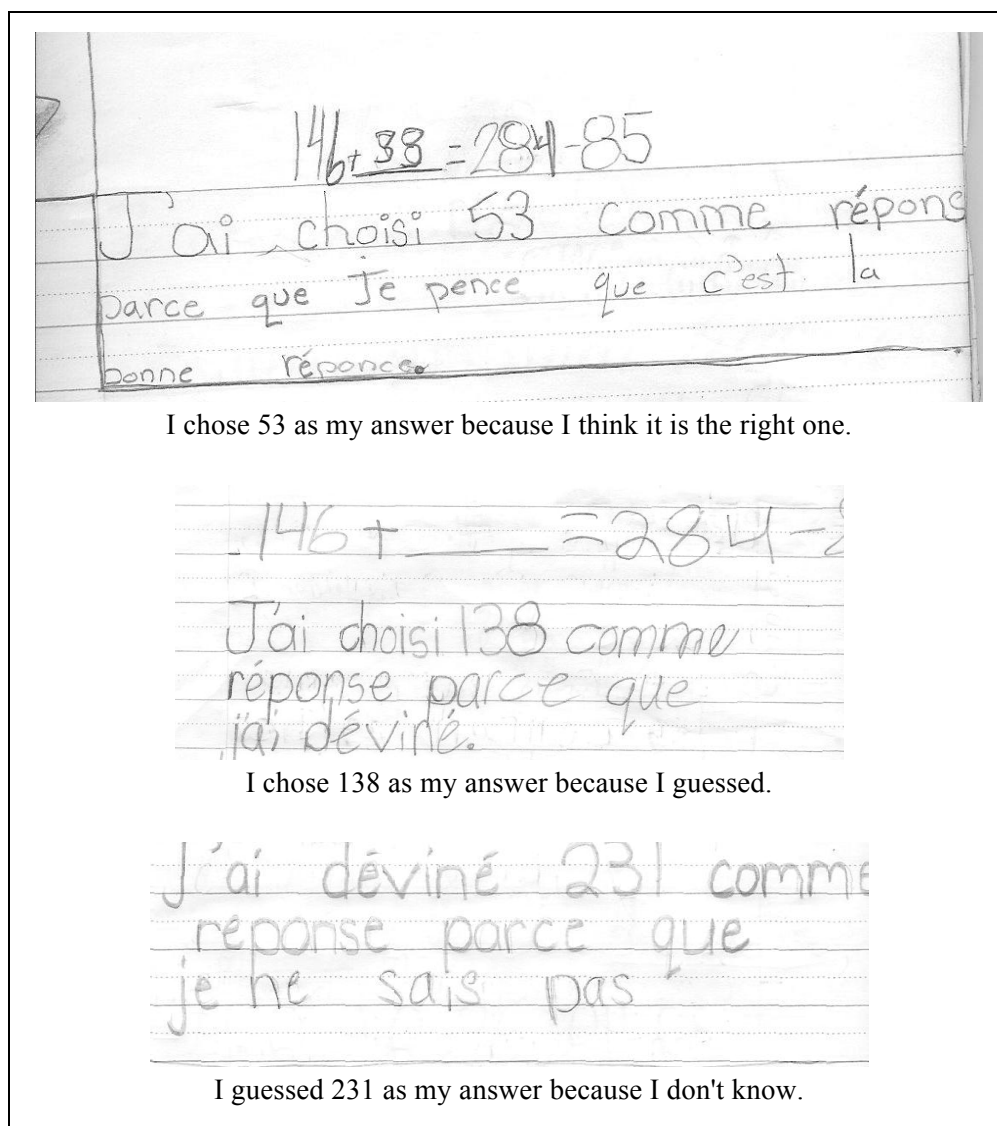 146+ 38 = 284-85
J'ai choisi 53 comme répons
parce que je pence que c'est la
bonne réponce.
I chose 53 as my answer because I think it is the right one.
146 + ___ = 284-
J'ai choisi 138 comme
réponse parce que
j'ai déviné.
I chose 138 as my answer because I guessed.
J'ai déviné 231 comme
réponse parce que
je ne sais pas
I guessed 231 as my answer because I don't know.